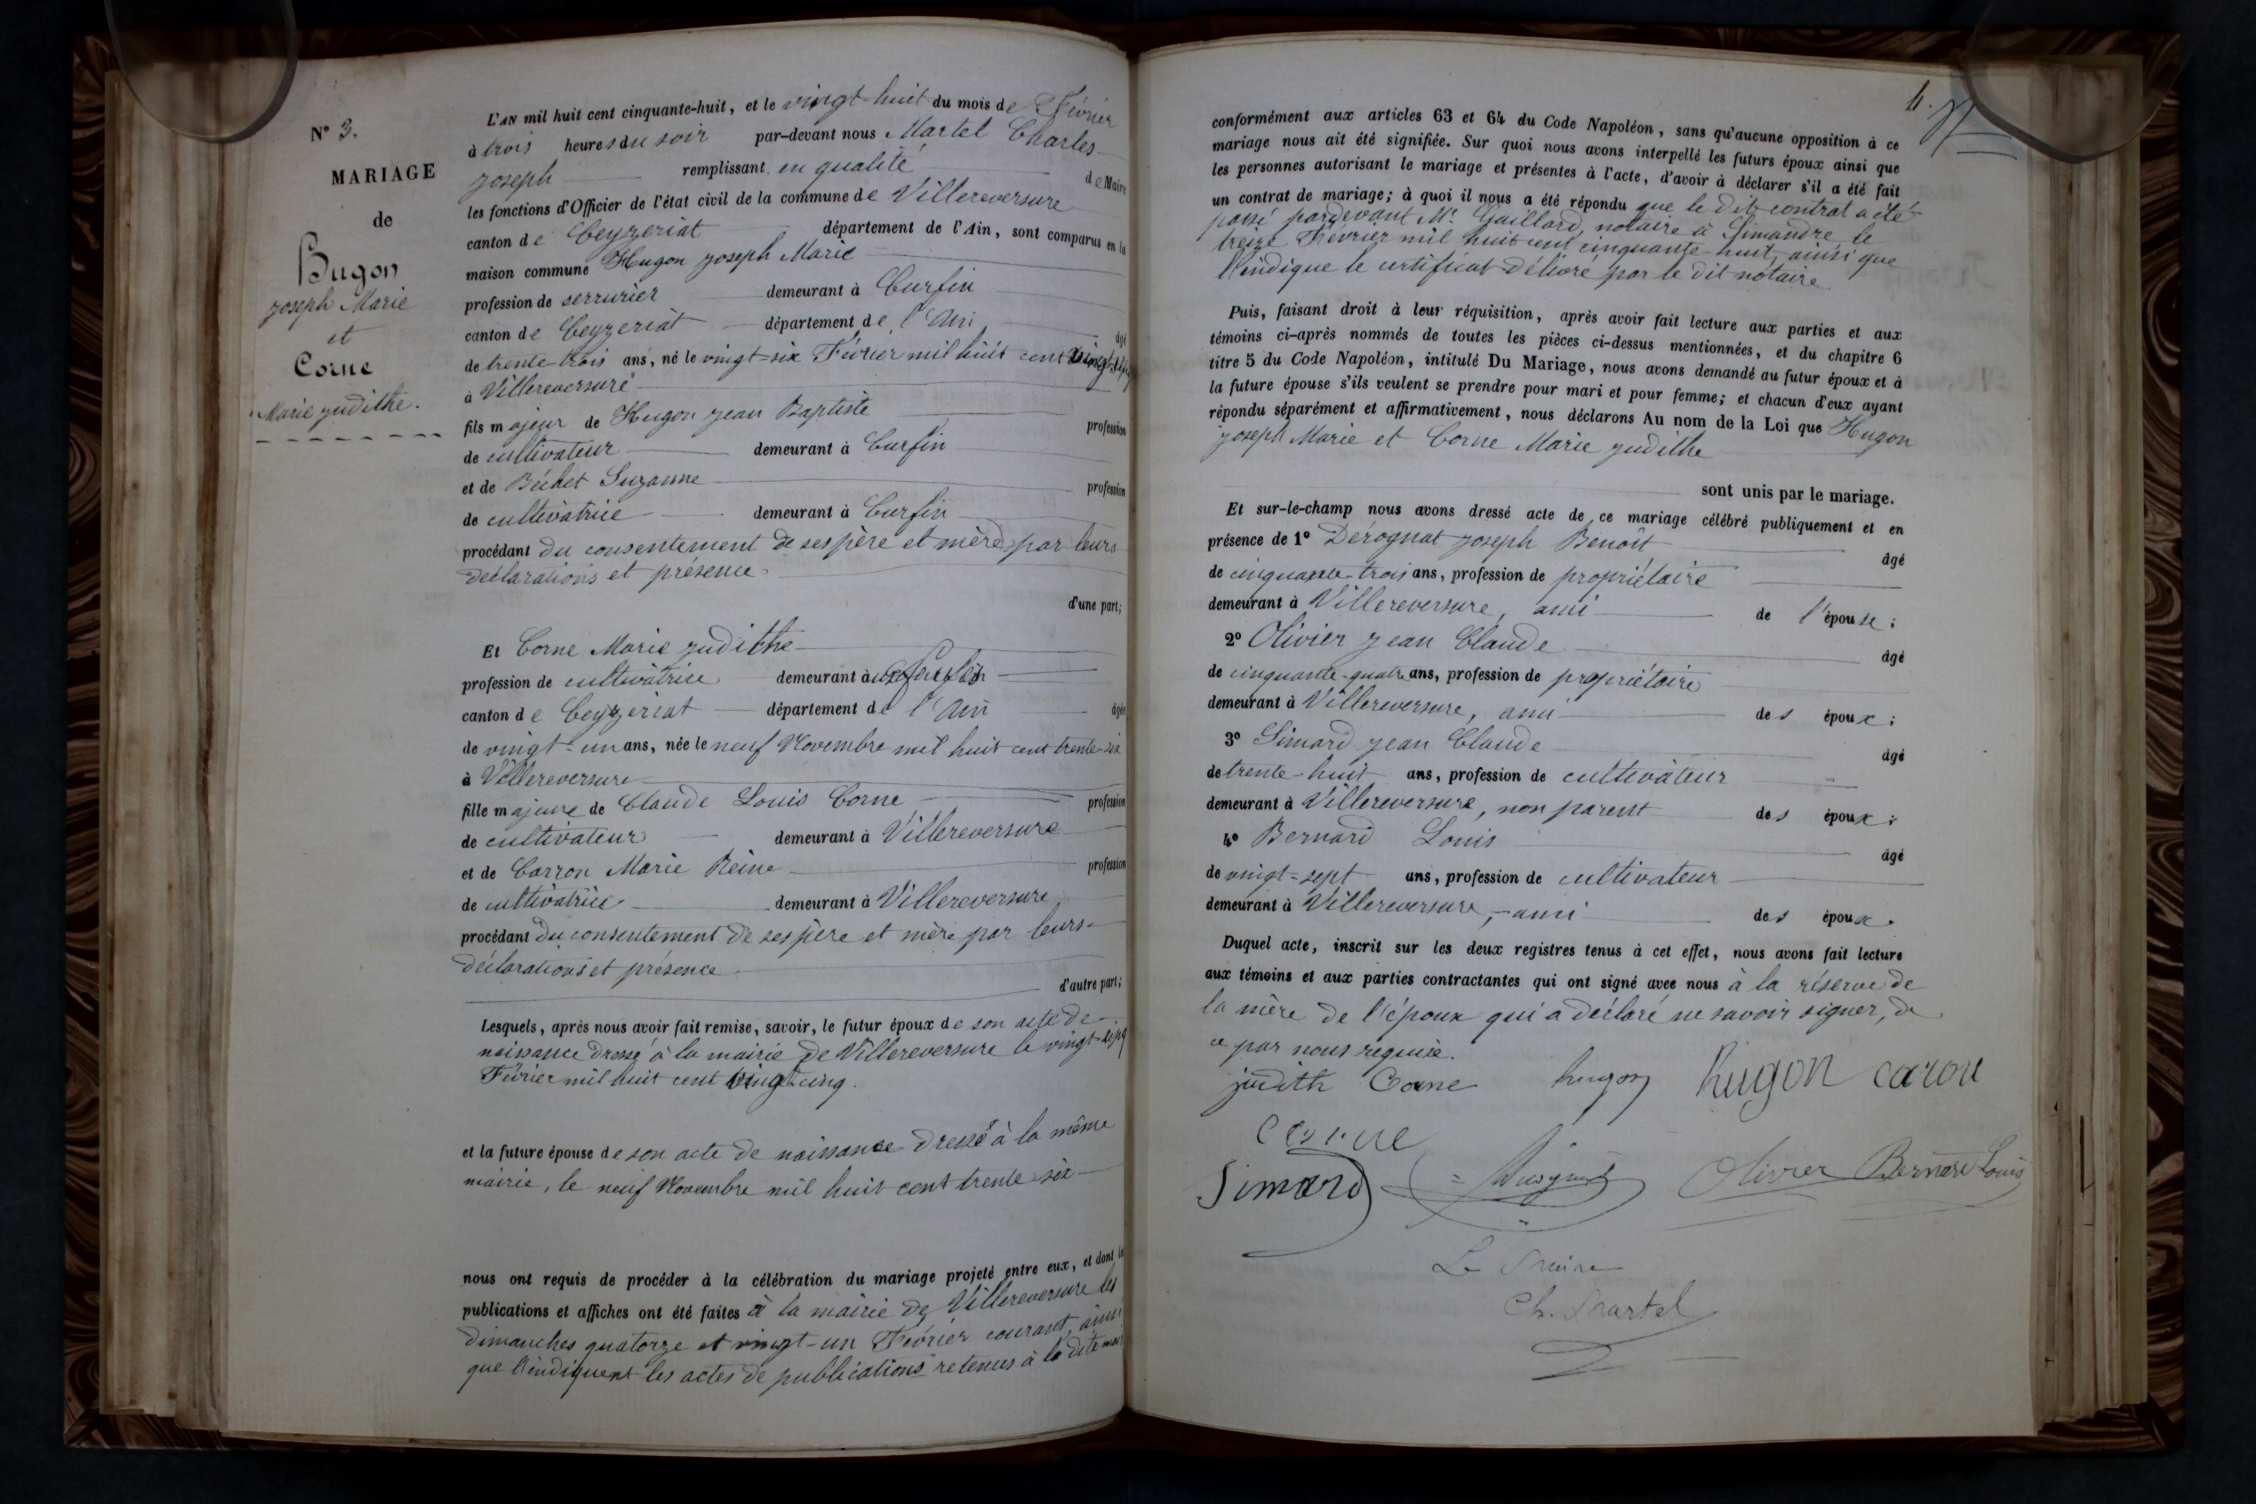 N° 3.
MARIAGE
de
Hugon
joseph Marie
et
Corne
Marie judithe.
L'AN mil huit cent cinquante-huit, et le vingt-huit du mois de Février
à trois heures du soir par-devant nous Martel Charles
joseph remplissant en qualité de Maire
les fonctions d'Officier de l'état civil de la commune de Villereversure
canton de Ceyzeriat département de l'Ain, sont comparus en la
maison commune Hugon joseph Marie
profession de serrurier demeurant à Curfin
canton de Ceyzeriat département de l'Ain âgé
de trente-trois ans, né le vingt-six Février mil huit cent vingt-cinq
à Villereversure
fils majeur de Hugon jean Baptiste profession
de cultivateur demeurant à Curfin
et de Béchet Suzanne profession
de cultivatrice demeurant à Curfin
procédant du consentement de ses père et mère par leurs
déclarations et présence.
d'une part;
Et Corne Marie judithe
profession de cultivatrice demeurant à
canton de Ceyzeriat département de l'Ain âgée
de vingt-un ans, née le neuf Novembre mil huit cent trente-six
à Villereversure
fille majeure de Claude Louis Corne profession
de cultivateur demeurant à Villereversure
et de Carron Marie Reine profession
de cultivatrice demeurant à Villereversure
procédant du consentement de ses père et mère par leurs
déclarations et présence
d'autre part;
Lesquels, après nous avoir fait remise, savoir, le futur époux de son acte de
naissance dressé à la mairie de Villereversure le vingt-sept
Février mil huit cent vingt cinq.
et la future épouse de son acte de naissance dressé à la même
mairie, le neuf Novembre mil huit cent trente six
nous ont requis de procéder à la célébration du mariage projeté entre eux, et dont les
publications et affiches ont été faites à la mairie de Villereversure les
dimanches quatorze et vingt-un Février courant, ainsi
que l'indiquent les actes de publications retenus à la dite mairie
4.
conformément aux articles 63 et 64 du Code Napoléon, sans qu'aucune opposition à ce
mariage nous ait été signifiée. Sur quoi nous avons interpellé les futurs époux ainsi que
les personnes autorisant le mariage et présentes à l'acte, d'avoir à déclarer s'il a été fait
un contrat de mariage; à quoi il nous a été répondu que le dit contrat a été
passé pardevant Mr. Gaillard, notaire à Simandre le
treize Février mil huit cent cinquante-huit, ainsi que
l'indique le certificat délivré par le dit notaire
Puis, faisant droit à leur réquisition, après avoir fait lecture aux parties et aux
témoins ci-après nommés de toutes les pièces ci-dessus mentionnées, et du chapitre 6
titre 5 du Code Napoléon, intitulé Du Mariage, nous avons demandé au futur époux et à
la future épouse s'ils veulent se prendre pour mari et pour femme; et chacun d'eux ayant
répondu séparément et affirmativement, nous déclarons Au nom de la Loi que Hugon
joseph Marie et Corne Marie judithe
sont unis par le mariage.
Et sur-le-champ nous avons dressé acte de ce mariage célébré publiquement et en
présence de 1° Dérognat joseph Benoît âgé
de cinquante-trois ans, profession de propriétaire
demeurant à Villereversure, ami de l'épouse;
2° Olivier jean Claude âgé
de cinquante-quatre ans, profession de propriétaire
demeurant à Villereversure, ami des époux;
3° Simard jean Claude âgé
de trente-huit ans, profession de cultivateur
demeurant à Villereversure, non parent des époux;
4° Bernard Louis âgé
de vingt-sept ans, profession de cultivateur
demeurant à Villereversure, ami des époux.
Duquel acte, inscrit sur les deux registres tenus à cet effet, nous avons fait lecture
aux témoins et aux parties contractantes qui ont signé avec nous à la réserve de
la mère de l'époux qui a déclaré ne savoir signer, de
ce par nous requise.
judith Corne hugon hugon caron
corne
Simard Olivier Bernard Louis
Le Maire
Ch. Martel